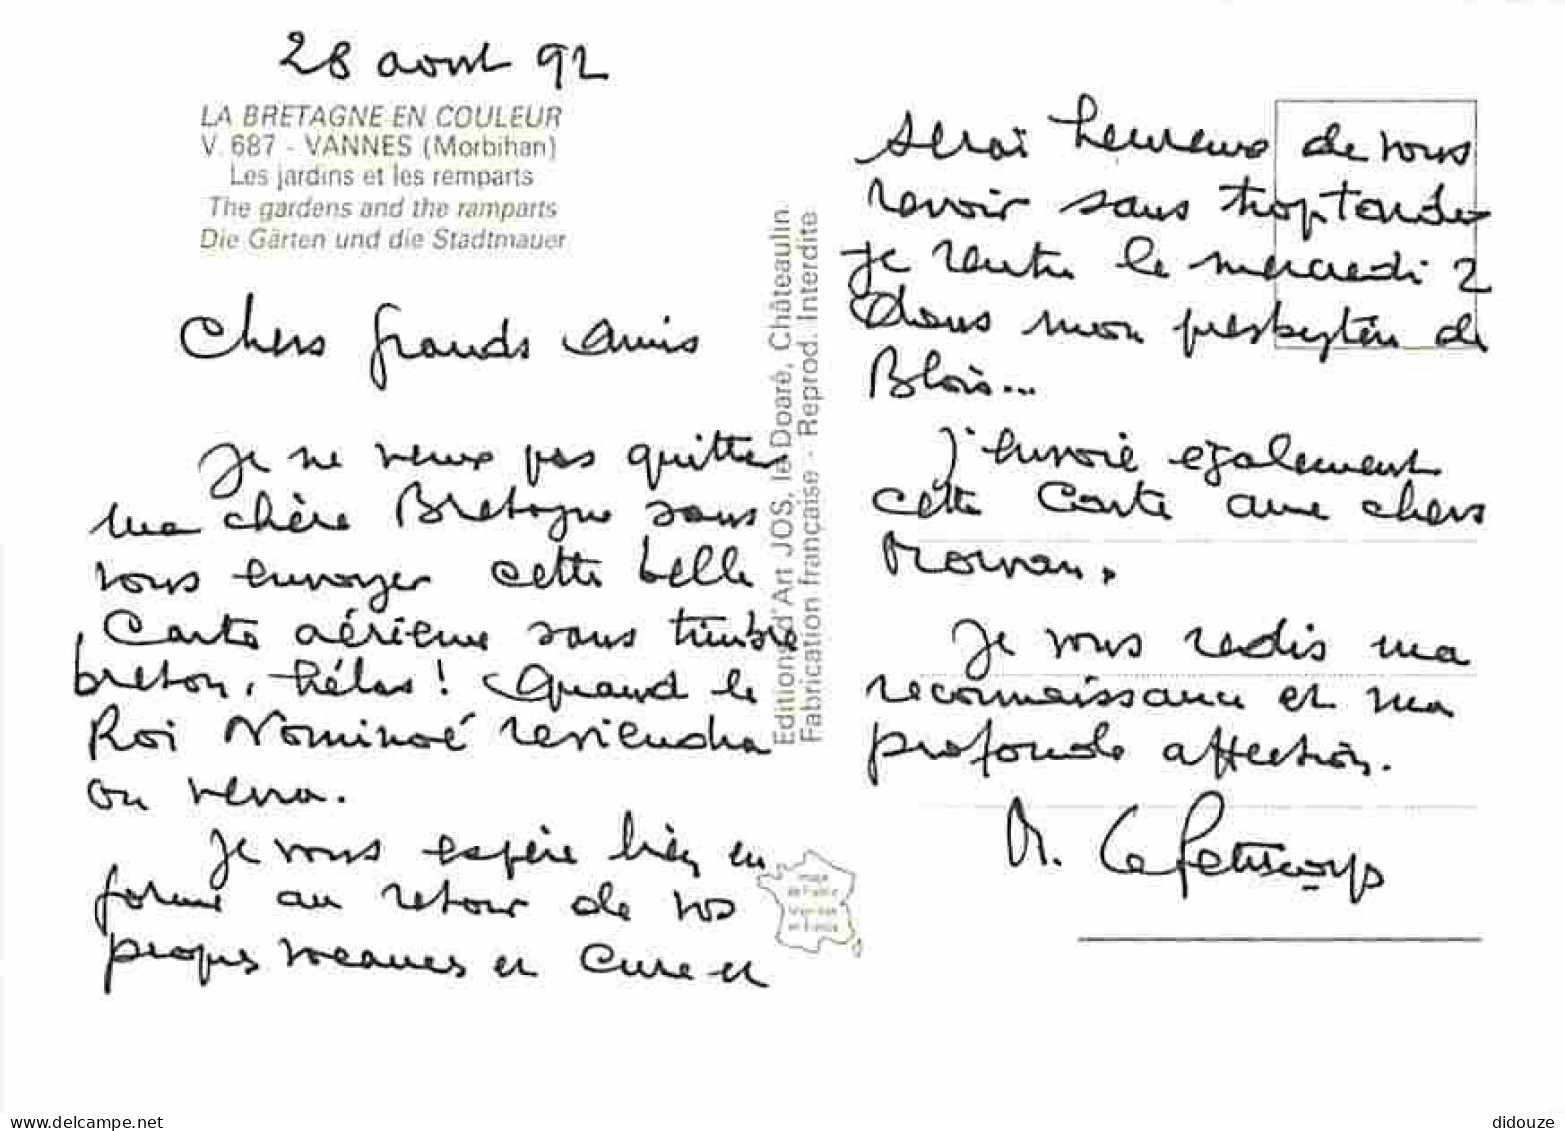 28 aout 92
LA BRETAGNE EN COULEUR
V. 687 - VANNES (Morbihan)
Les jardins et les remparts
The gardens and the ramparts
Die Gärten und die Stadtmauer
Chers grands Amis
Je ne veux pas quitter
ma chère Bretagne sans
vous envoyer cette belle
Carte aérienne sans timbre
breton, hélas ! Quand le
Roi Nominoé reviendra
on verra.
Je vous espère bien en
forme au retour de vos
propres vacances et Cure et
Editions d'Art JOS, le Doaré, Châteaulin.
Fabrication française - Reprod. Interdite
Image
de France
en France
serai heureux de vous
revoir sans trop tarder
je rentre le mercredi 2
dans mon presbytère de
Blois...
J'envoie également
cette Carte aux chers
Morvan.
Je vous redis ma
reconnaissance et ma
profonde affection.
M.
delcampe.net
didouze